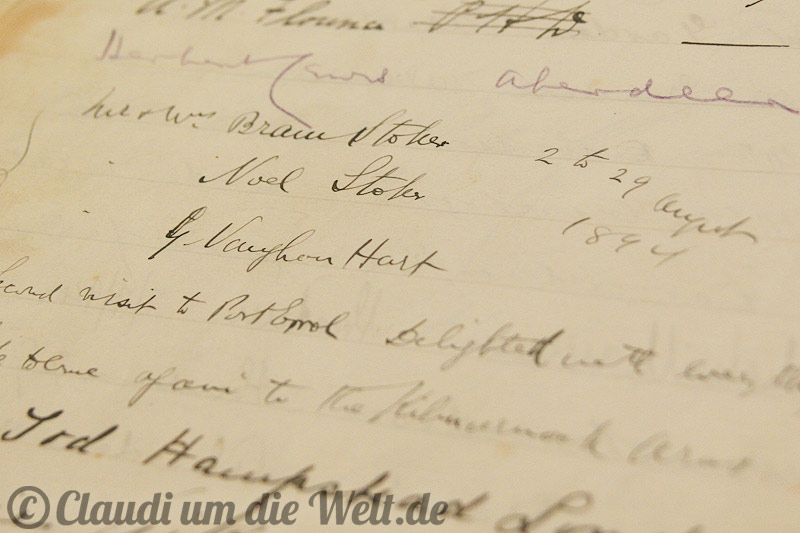 A. M. Flouna
Herbert Lewis Aberdeen
Mr & Mrs Bram Stoker 2 to 29 August
Noel Stoker 1894
G. Vaughan Hart
Second visit to Port Erroll Delighted with every
to the Kilmarnock Arms
Tod Hampstead
© Claudi um die Welt.de